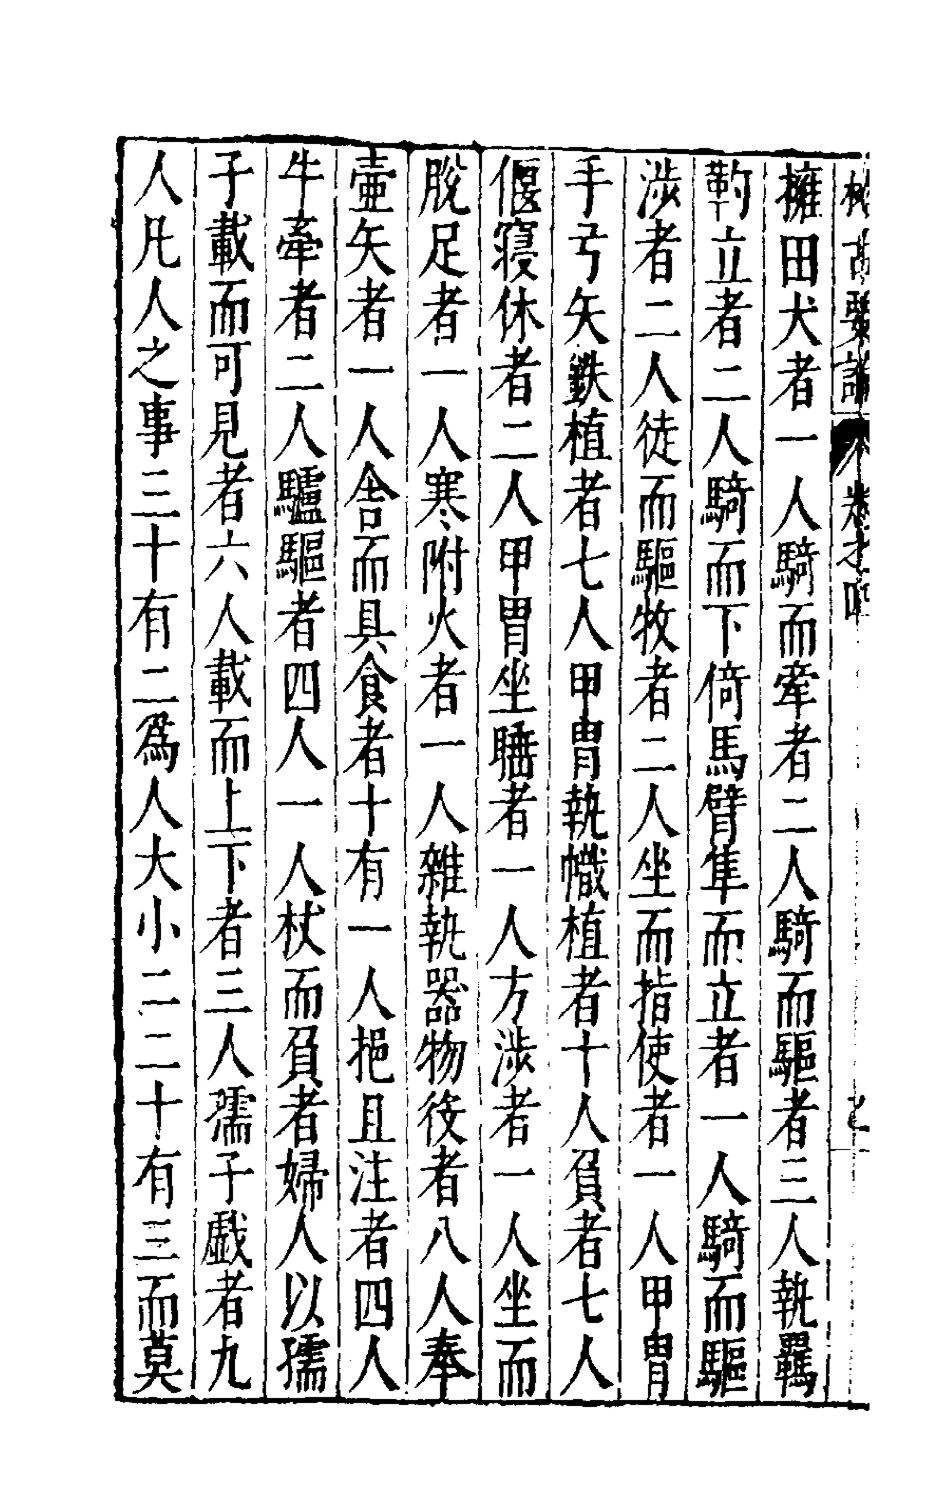 擁田犬者一人騎而牽者二人騎而驅者三人執羈
靮立者二人騎而下倚馬臂隼而立者一人騎而驅
涉者二人徒而驅牧者二人坐而指使者一人甲冑
手弓矢鉄植者七人甲冑執幟植者十人負者七人
偃寢休者二人甲冑坐睡者一人方涉者一人坐而
脫足者一人寒附火者一人雜執器物役者八人奉
壷矢者一人舎而具食者十有一人挹且注者四人
牛牽者二人驢驅者四人一人杖而負者婦人以孺
子載而可見者六人載而上下者三人孺子戱者九
人凡人之事三十有二爲人大小二二十有三而莫